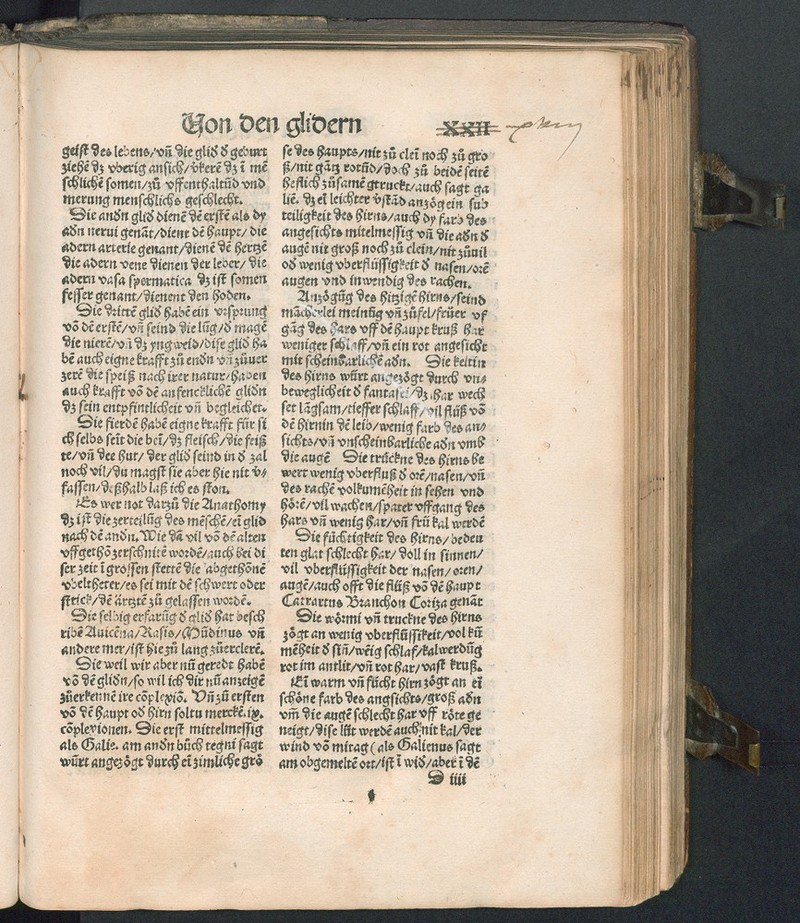 Von den glidern
XXII
geist des lebens/vñ die glid d̕ geburt
ziehẽ dz vberig an sich/v̕kerẽ dz ĩ mẽ
schlichẽ somen/zů vffenthaltũd vnd
merung menschlichs geschlecht.
Die andn glid dienẽ dẽ erstẽ als dy
adn nerui genãt/dient dẽ haupt/die
adern arterie genant/dienẽ dẽ hertzẽ
die adern vene dienen der leber/die
adern vasa spermatica dz ist somen
fesser genant/dienent den hoden.
Die drittẽ glid habẽ ein vrsprung
võ dẽ erstẽ/vñ seind die lũg/d̕ magẽ
die nierẽ/vñ dz yngweid/dise glid ha
bẽ auch eigne krafft zů endn vñ zůuer
zerẽ die speiß nach irer natur/haben
auch krafft võ dẽ anfencklichẽ glidn
dz sein entpfintlicheit vñ begleichet.
Die fierdẽ habẽ eigne krafft für si
ch selbs seĩt die beĩ/dz fleisch/die feiß
te/vñ dee hut/der glid seind in d̕ zal
noch vil/du magst sie aber hie nit v̕-
fassen/deßhalb laß ich es ston.
Es wer not darzů die Anathomy
dz ist die zerteilũg des mẽschẽ/eĩ glid
nach dẽ andn. Wie da vil võ dẽ alten
vffgethõ zerschnitẽ wordẽ/auch bei di
ser zeit ĩ grossen stettẽ die abgethõnẽ
vbeltheter/es sei mit dẽ schwert oder
strick/dẽ ärtztẽ zů gelassen wordẽ.
Die selbig erfarũg d̕ glid hat besch
ribẽ Auicẽna/Rasis/Mũdinus vñ
andere mer/ist hie zů lang zůerclerẽ.
Die weil wir aber nũ geredt habẽ
võ dẽ glidn/so wil ich dir nũ anzeigẽ
zůerkennẽ ire cõplexiõ. Vñ zů ersten
võ dẽ haupt od̕ hirn soltu merckẽ.ix.
cõplexionen. Die erst mittelmessig
als Galie. am andn bůch tegni sagt
würt angezögt durch eĩ zimliche grö
se des haupts/nit zů cleĩ noch zů gro
ß/nit gãtz rotũd/doch zů beidẽ seitẽ
heflich zůsamẽ gtruckt/auch sagt ga
liẽ. dz eĩ leichter v̕stãd anzög ein sub
teiligkeit des hirns/auch dy farb des
angesichts mitelmessig vñ die adn d̕
augẽ nit groß noch zů clein/nit zůuil
od̕ wenig vberflüssigkeit d̕ nasen/orẽ
augen vnd inwendig des rachen.
Anzögũg des hitzigẽ hirns/seind
mãcherlei meinũg vñ zůfel/früer vf
gãg des hars vff dẽ haupt kruß har
weniger schlaff/vñ ein rot angesicht
mit scheinbarlichẽ adn. Die keltin
des hirns würt angezögt durch vn-
beweglicheit d̕ fantasei/dz har wech
set lãgsam/tieffer schlaff/vil flüß võ
dẽ hirn in dẽ leib/wenig farb des an-
sichts/vñ vnscheinbarliche adn vmb
die augẽ Die trückne des hirns be
wert wenig vberfluß d̕ orẽ/nasen/vñ
des rachẽ volkumẽheit in sehen vnd
hörẽ/vil wachen/spater vffgang des
hars vñ wenig har/vñ frü kal werdẽ
Die füchtigkeit des hirns/bedeu
ten glat schlecht har/doll in sinnen/
vil vberflüssigkeit der nasen/oren/
augẽ/auch offt die flüß võ dẽ haupt
Catrartus Branchon Coriza genãt
Die wörmi vñ truckne des hirns
zögt an wenig vberflüssikeit/volkũ
mẽheit d̕ siñ/wẽig schlaf/kalwerdũg
rot im antlit/vñ rot har/vast kruß.
Eĩ warm vñ fücht hirn zögt an eĩ
schöne farb des angsichts/groß adn
vm̃ die augẽ schlecht har vff röte ge
neigt/dise lüt werdẽ auch nit kal/der
wind võ mitag (als Galienus sagt
am obgemeltẽ ort/ist ĩ wid̕/aber ĩ dẽ
D iiii